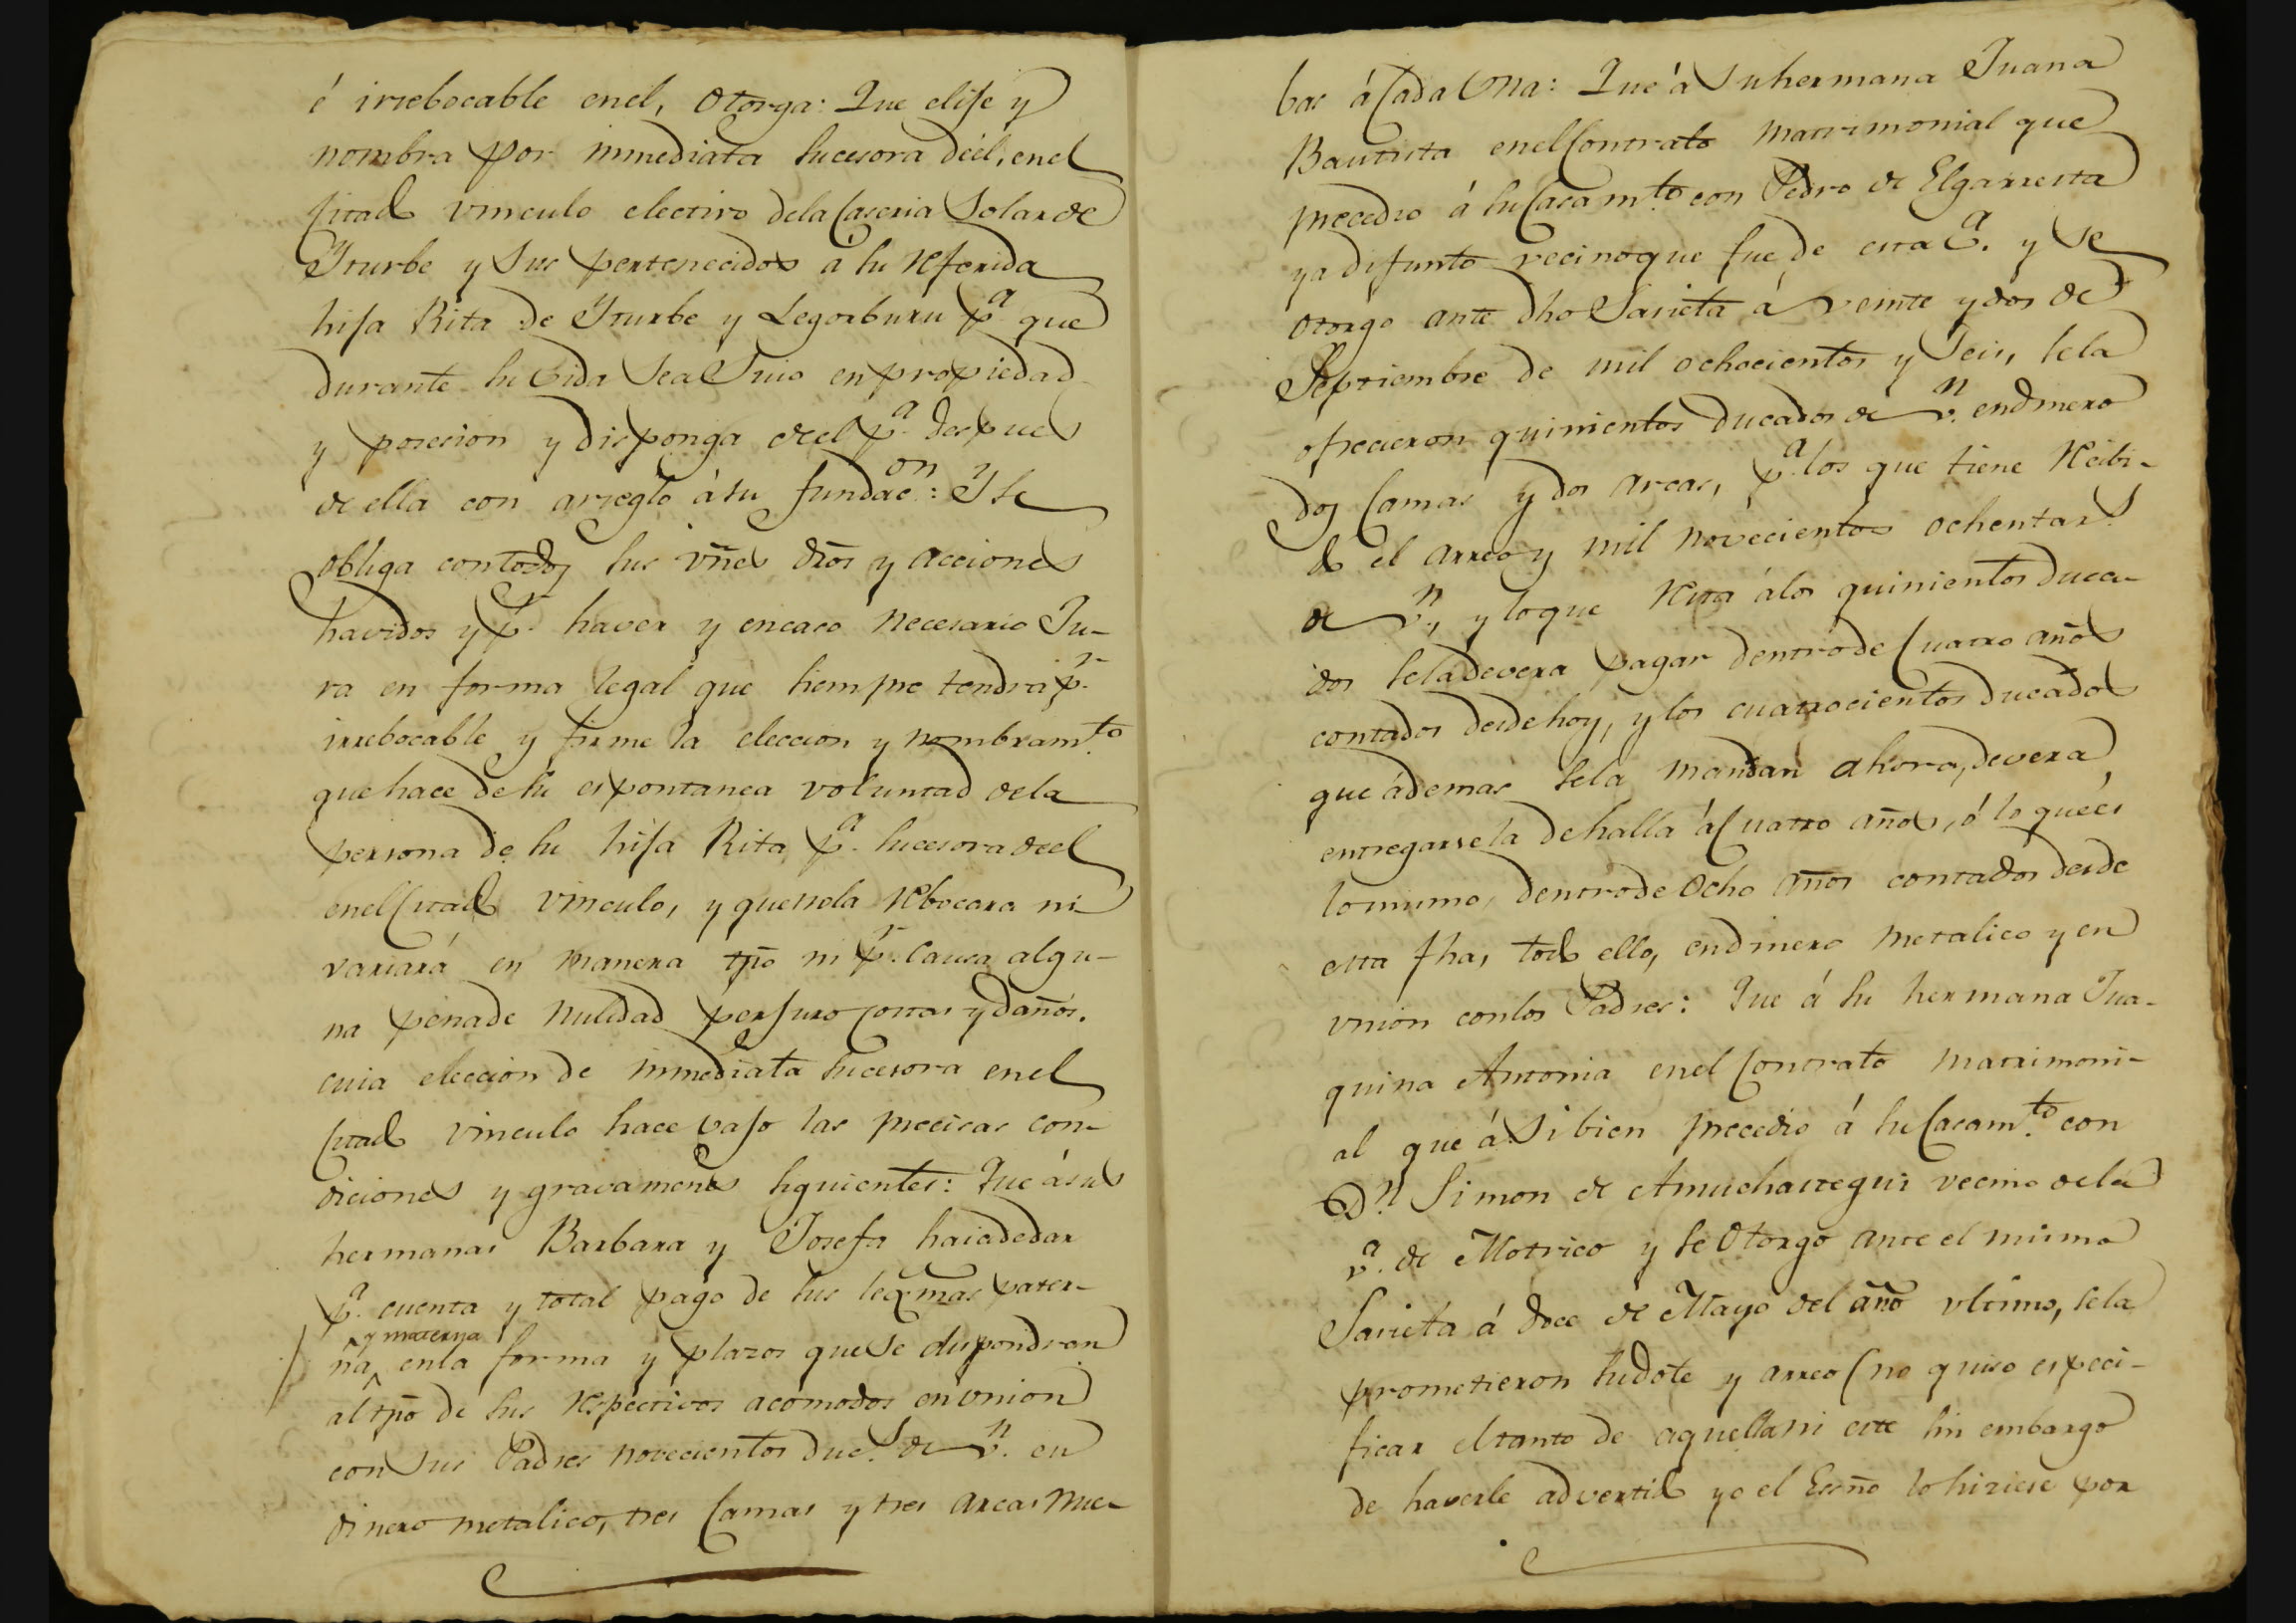 é irrebocable enel, Otorga: Que elije y
nombra por inmediata sucesora deél, enel
citado vinculo electivo dela Caseria Solar de
Yturbe y sus pertenecidos á su referida
hija Rita de Yturbe y Legorburu pª que
durante su vida sea suio en propiedad
y posesion y disponga deel pª despues
de ella con arreglo á su fundacon: Y se
obliga contodos sus vñes dros y acciones
havidos y pr haver y encaso necesario Ju-
ra en forma legal que siempre tendra pr
irrebocable y firme la eleccion y nombramto
que hace de su espontanea voluntad dela
persona de su hija Rita pª sucesora deel
enel citado vinculo, y quenola rebocara ni
variará en manera tpo ni pr causa algu-
na penade nulidad perjuro costas y daños.
cuia eleccion de inmediata sucesora enel
citado vinculo hace vajo las precisas con-
diciones y gravamenes siguientes: Que ásus
hermanas Barbara y Josefa haiadedar
pª cuenta y total pago de sus legmas pater-
y materna
na enla forma y plazos que se dispondran
al tpo de sus respectivos acomodos en union
con sus Padres novecientos ducs de vn en
dinero metalico, tres Camas y tres arcas nue-
bas á Cada Vna: Que á su hermana Juana
Bautista enel Contrato matrimonial que
precedio á su Casamto con Pedro de Elgarresta
ya difunto vecino que fue de esta Vª. y se
otorgo ante dho Sarieta á veinte y dos de
Septiembre de mil ochocientos y seis, sela
ofrecieron quinientos ducados de vn endinero
dos Camas y dos arcas, pª los que tiene recibi-
do el arreo y mil novecientos ochenta rs
de vn, y loque resta álos quinientos duca-
dos sela devera pagar dentro de Cuatro años
contados desde hoy, y los cuatrocientos ducados
que ádemas sela mandan ahora, devera
entregarsela dehalla á Cuatro años, ó lo que és
lo mismo, dentro de Ocho años contados desde
esta fha, todo ello, endinero metalico y en
vnion conlos Padres: Que á su hermana Jua-
quina Antonia enel Contrato matrimoni-
al que ási bien precedio á su Casamto con
Dn Simon de Amuchastegui vecino dela
vª. de Motrico y se Otorgo ante el mismo
Sarieta á doce de Mayo del año vltimo, sela
prometieron su dote y arreo (no quiso especi-
ficar el tanto de aquella ni este sin embargo
de haverle advertido yo el Essno lo hiziese por